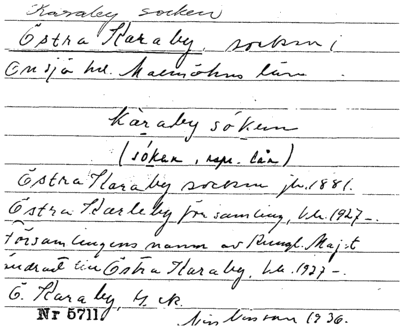 Karaby socken
Östra Karaby, socken i
Onsjö hd. Malmöhus län
Karaby söken
(söken, repr. län)
Östra Karaby socken jb. 1881.
Östra Karleby församling, kb. 1927 –.
Församlingens namn av Kungl. Maj:t
ändrat till Östra Karaby, kb. 1927 –.
Ö. Karaby, gk.
Nr 5711
Nils Nilsson 1936.